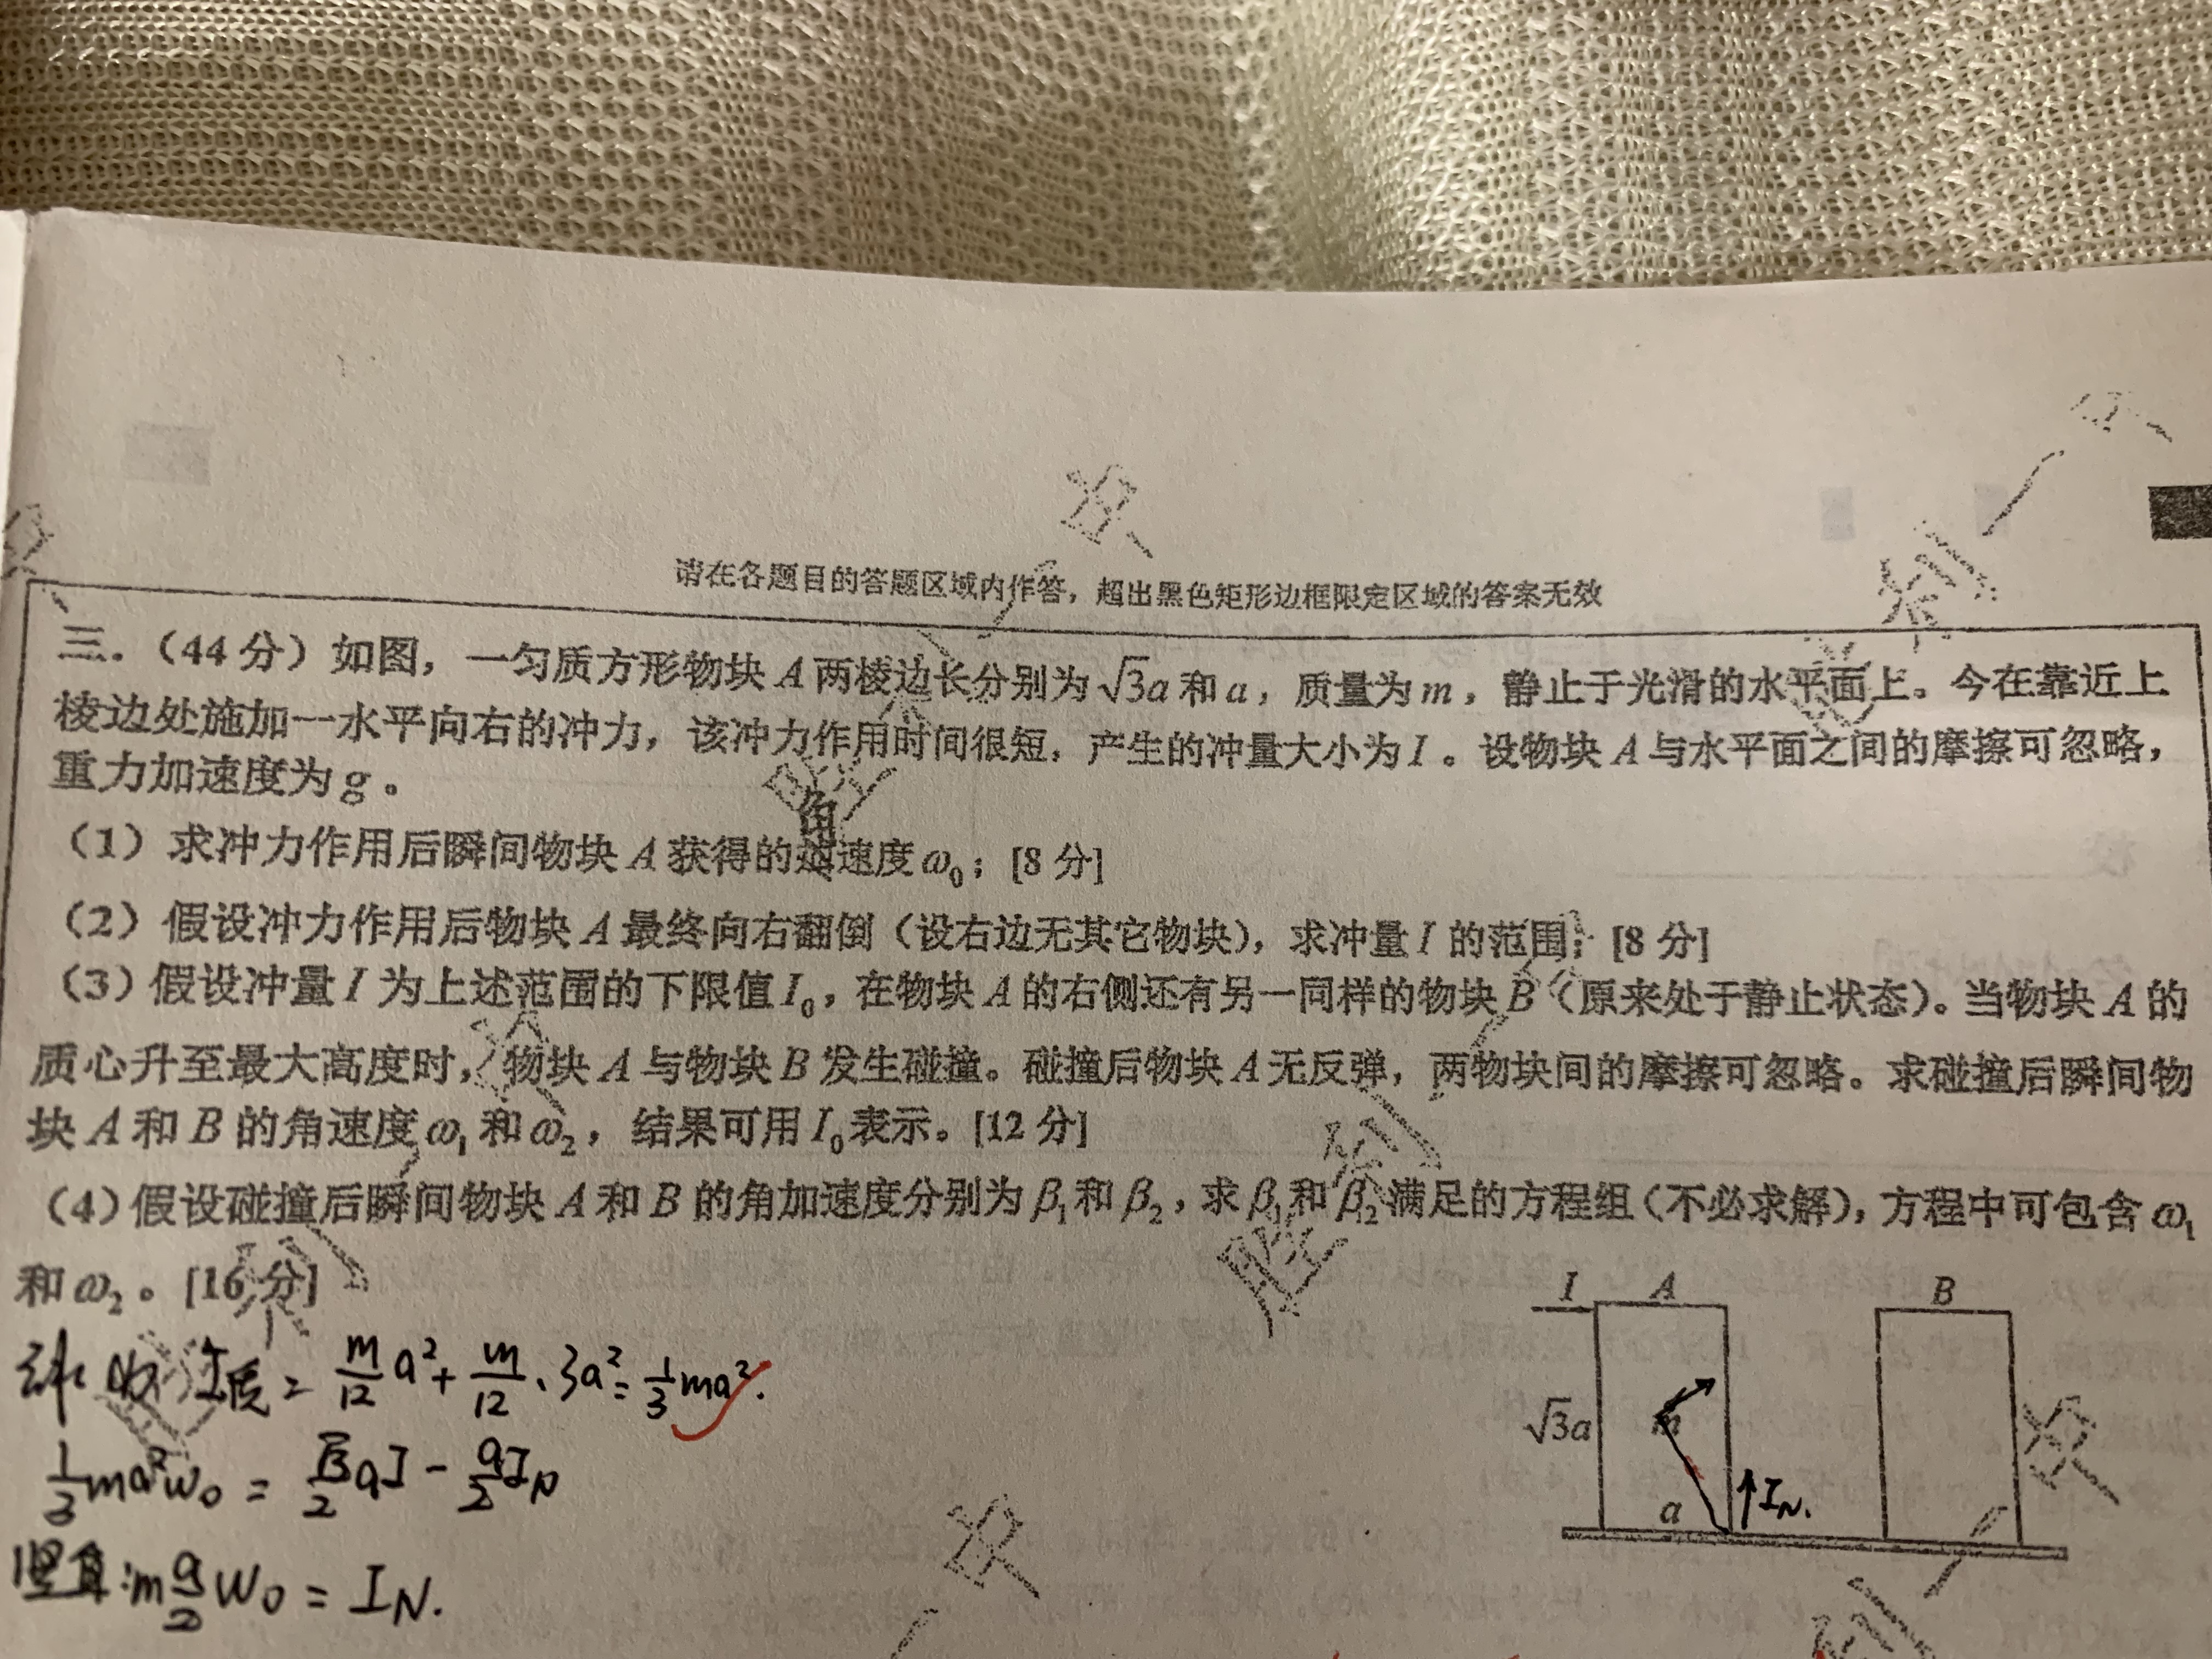 请在各题目的答题区域内作答，超出黑色矩形边框限定区域的答案无效
三.（44 分）如图，一匀质方形物块 A 两棱边长分别为 √3a 和 a，质量为 m，静止于光滑的水平面上。今在靠近上
棱边处施加一水平向右的冲力，该冲力作用时间很短，产生的冲量大小为 I。设物块 A 与水平面之间的摩擦可忽略，
重力加速度为 g。
（1）求冲力作用后瞬间物块 A 获得的角速度 ω₀；[8 分]
（2）假设冲力作用后物块 A 最终向右翻倒（设右边无其它物块），求冲量 I 的范围；[8 分]
（3）假设冲量 I 为上述范围的下限值 I₀，在物块 A 的右侧还有另一同样的物块 B（原来处于静止状态）。当物块 A 的
质心升至最大高度时，物块 A 与物块 B 发生碰撞。碰撞后物块 A 无反弹，两物块间的摩擦可忽略。求碰撞后瞬间物
块 A 和 B 的角速度 ω₁ 和 ω₂，结果可用 I₀ 表示。[12 分]
（4）假设碰撞后瞬间物块 A 和 B 的角加速度分别为 β₁ 和 β₂，求 β₁ 和 β₂ 满足的方程组（不必求解），方程中可包含 ω₁
和 ω₂。[16 分]
I A B
√3a m
a I_N.
= m/12 a² + m/12 · 3a² = 1/3 ma².
1/3 ma²ω₀ = √3/2 aI - a/2 I_N
竖直: m a/2 ω₀ = I_N.
胜利一中
胜利一中
胜利一中